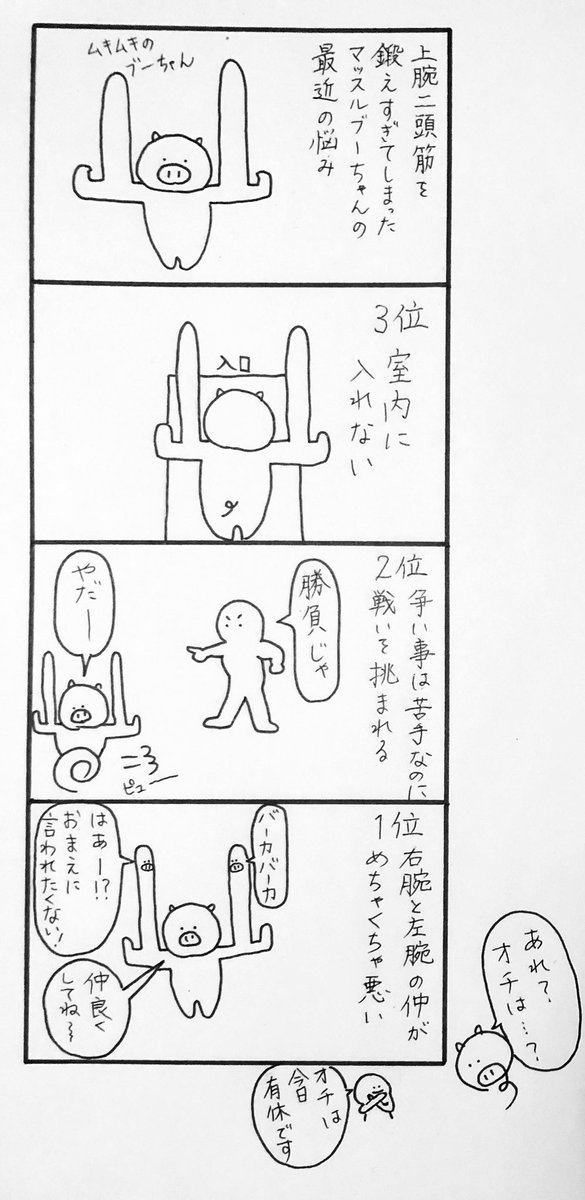 上腕二頭筋を
鍛えすぎてしまった
マッスルブーちゃんの
最近の悩み
ムキムキの
ブーちゃん
3位
室内に
入れない
入口
2位
争い事は苦手なのに
戦いを挑まれる
勝負じゃ
やだー
ピュー
1位
右腕と左腕の仲が
めちゃくちゃ悪い
バーカバーカ
はあー!?
おまえに
言われたくない!
仲良く
してね〜
あれ?
オチは…?
オチは
今日
有休です